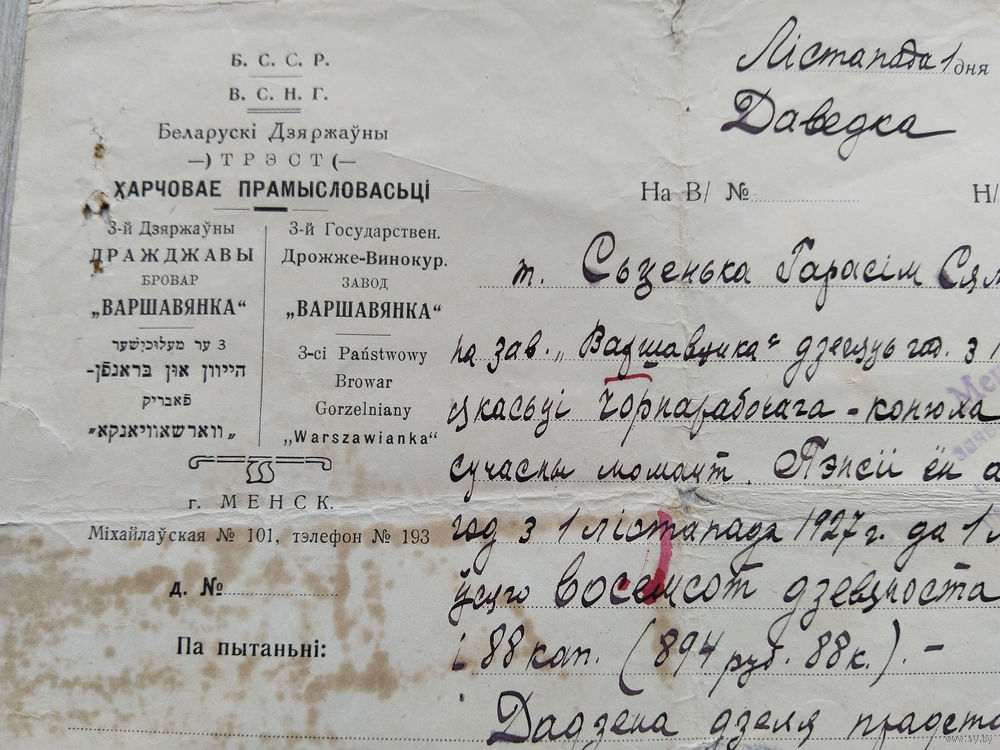 Б. С. С. Р.
В. С. Н. Г.
Беларускі Дзяржаўны
—) ТРЭСТ (—
ХАРЧОВАЕ ПРАМЫСЛОВАСЬЦІ
3-й Дзяржаўны
ДРАЖДЖАВЫ
БРОВАР
„ВАРШАВЯНКА“
3 ער מעלוכישער
הייוון און בראנפֿן-
פֿאבריק
„ווארשאוויאנקא“
3-й Государствен.
Дрожже-Винокур.
ЗАВОД
„ВАРШАВЯНКА“
3-ci Państwowy
Browar
Gorzelniany
„Warszawianka“
г. МЕНСК.
Міхайлаўская № 101, тэлефон № 193
д. №
Па пытаньні:
Лістапада 1 дня
Даведка
На В/ №
Н/
т. Сьценька Гарасім
на зав. „Варшавянка“ дзевяць год. з
цкасьці Чорнарабочага - конюха
сучасны момант. Пэнсіі ён а
год з 1 лістапада 1927 г. да 1 л
ўсяго восемсот дзевяноста
і 88 кап. (894 руб. 88 к.). -
Дадзена дзеля прадста
www.ay.by